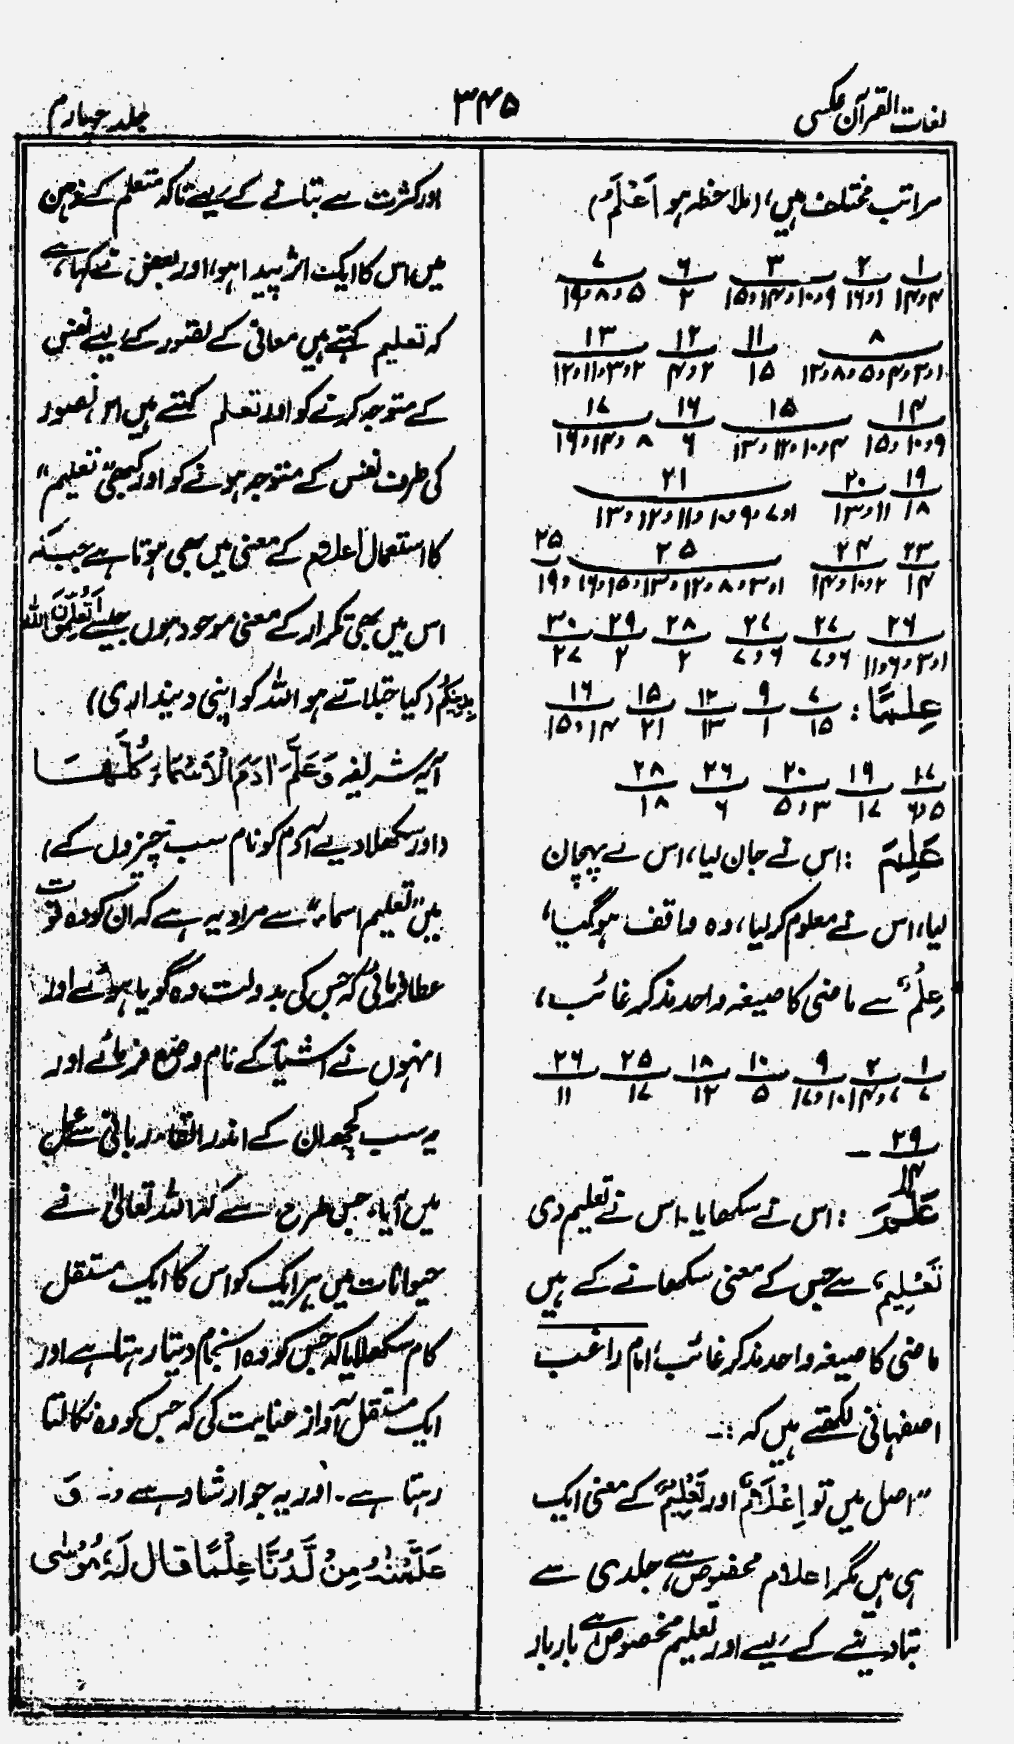 لغات القرآن عکسی
۳۴۵
جلد چہارم
مراتب مختلف ہیں، (ملاحظہ ہو اَعْلَمُ)
۱ ۲ ۳ ۶ ۷
۴و۱۴ ۱و۱۶ ۹و۱۰و۱۴و۱۵ ۲ ۵و۸و۱۹
۸ ۱۱ ۱۲ ۱۳
۱و۳و۴و۵و۸و۱۲ ۱۵ ۲و۴ ۲و۳و۱۱و۱۲
۱۴ ۱۵ ۱۶ ۱۷
۹و۱۰و۱۵ ۴و۱۰و۱۲و۱۳ ۶ ۸و۱۴و۱۶
۱۹ ۲۰ ۲۱
۱۸ ۱۱و۱۳ ۱و۷و۹و۱۰و۱۱و۱۲و۱۳
۲۳ ۲۴ ۲۵ ۲۵
۱۴ ۲و۱۰و۱۴ ۱و۳و۸و۱۲و۱۳و۱۵و۱۶ و۱۹
۲۶ ۲۷ ۲۷ ۲۸ ۲۹ ۳۰
۱و۳و۶و۱۱ ۶و۷ ۶و۷ ۲ ۲ ۲۷
عِلْمًا: ۷ ۹ ۱۲ ۱۵ ۱۶
۱۵ ۱ ۱۳ ۲۱ ۱۴و۱۵
۱۷ ۱۹ ۲۰ ۲۶ ۲۸
۵و۶ ۱۷ ۳و۵ ۶ ۱۸
عَلِمَ : اس نے جان لیا، اس نے پہچان
لیا، اس نے معلوم کر لیا، وہ واقف ہو گیا،
عِلْمٌ سے ماضی کا صیغہ واحد مذکر غائب،
۱ ۲ ۹ ۱۰ ۱۸ ۲۵ ۲۶
۷ ۷و۱۴ ۱۰و۱۷ ۵ ۱۲ ۱۷ ۱۱
۲۹
۱۴
عَلَّمَ : اس نے سکھایا۔ اس نے تعلیم دی
تَعْلِیم سے جس کے معنی سکھانے کے ہیں
ماضی کا صیغہ واحد مذکر غائب، امام راغب
اصفہانی لکھتے ہیں کہ :۔
”اصل میں تو اِعْلَامٌ اور تَعْلِیمٌ کے معنی ایک
ہی ہیں مگر اعلام مخصوص ہے، جلدی سے
بتا دینے کے لیے اور تعلیم مخصوص ہے بار بار
اور کثرت سے بتانے کے لیے تاکہ متعلم کے ذہن
میں اس کا ایک اثر پیدا ہو، اور بعض نے کہا ہے
کہ تعلیم کہتے ہیں معانی کے تصور کے لیے نفس
کے متوجہ کرنے کو اور تعلم کہتے ہیں اس تصور
کی طرف نفس کے متوجہ ہونے کو اور کبھی ”تعلیم“
کا استعمال اعلام کے معنی میں بھی ہوتا ہے جبکہ
اس میں بھی تکرار کے معنی موجود ہوں جیسے اَتُعَلِّمُوْنَ اللّٰهَ
بِدِيْنِكُمْ (کیا جتلاتے ہو اللہ کو اپنی دینداری)
آیہ شریفہ وَعَلَّمَ اٰدَمَ الْاَسْمَآءَ كُلَّهَا
(اور سکھلا دیے آدم کو نام سب چیزوں کے)
میں ”تعلیم اسماء“ سے مراد یہ ہے کہ ان کو وہ قوت
عطا فرمائی کہ جس کی بدولت وہ گویا ہوئے اور
انہوں نے اشیا کے نام وضع فرمائے اور
یہ سب کچھ ان کے اندر القاء ربانی سے عمل
میں آیا، جس طرح سے کہ اللہ تعالیٰ نے
حیوانات میں ہر ایک کو اس کا ایک مستقل
کام سکھلایا کہ جس کو وہ انجام دیتا رہتا ہے اور
ایک مستقل آواز عنایت کی کہ جس کو وہ نکالتا
رہتا ہے۔ اور یہ جو ارشاد ہے :۔ وَ
عَلَّمْنٰهُ مِنْ لَّدُنَّا عِلْمًا قَالَ لَهٗ مُوْسٰى